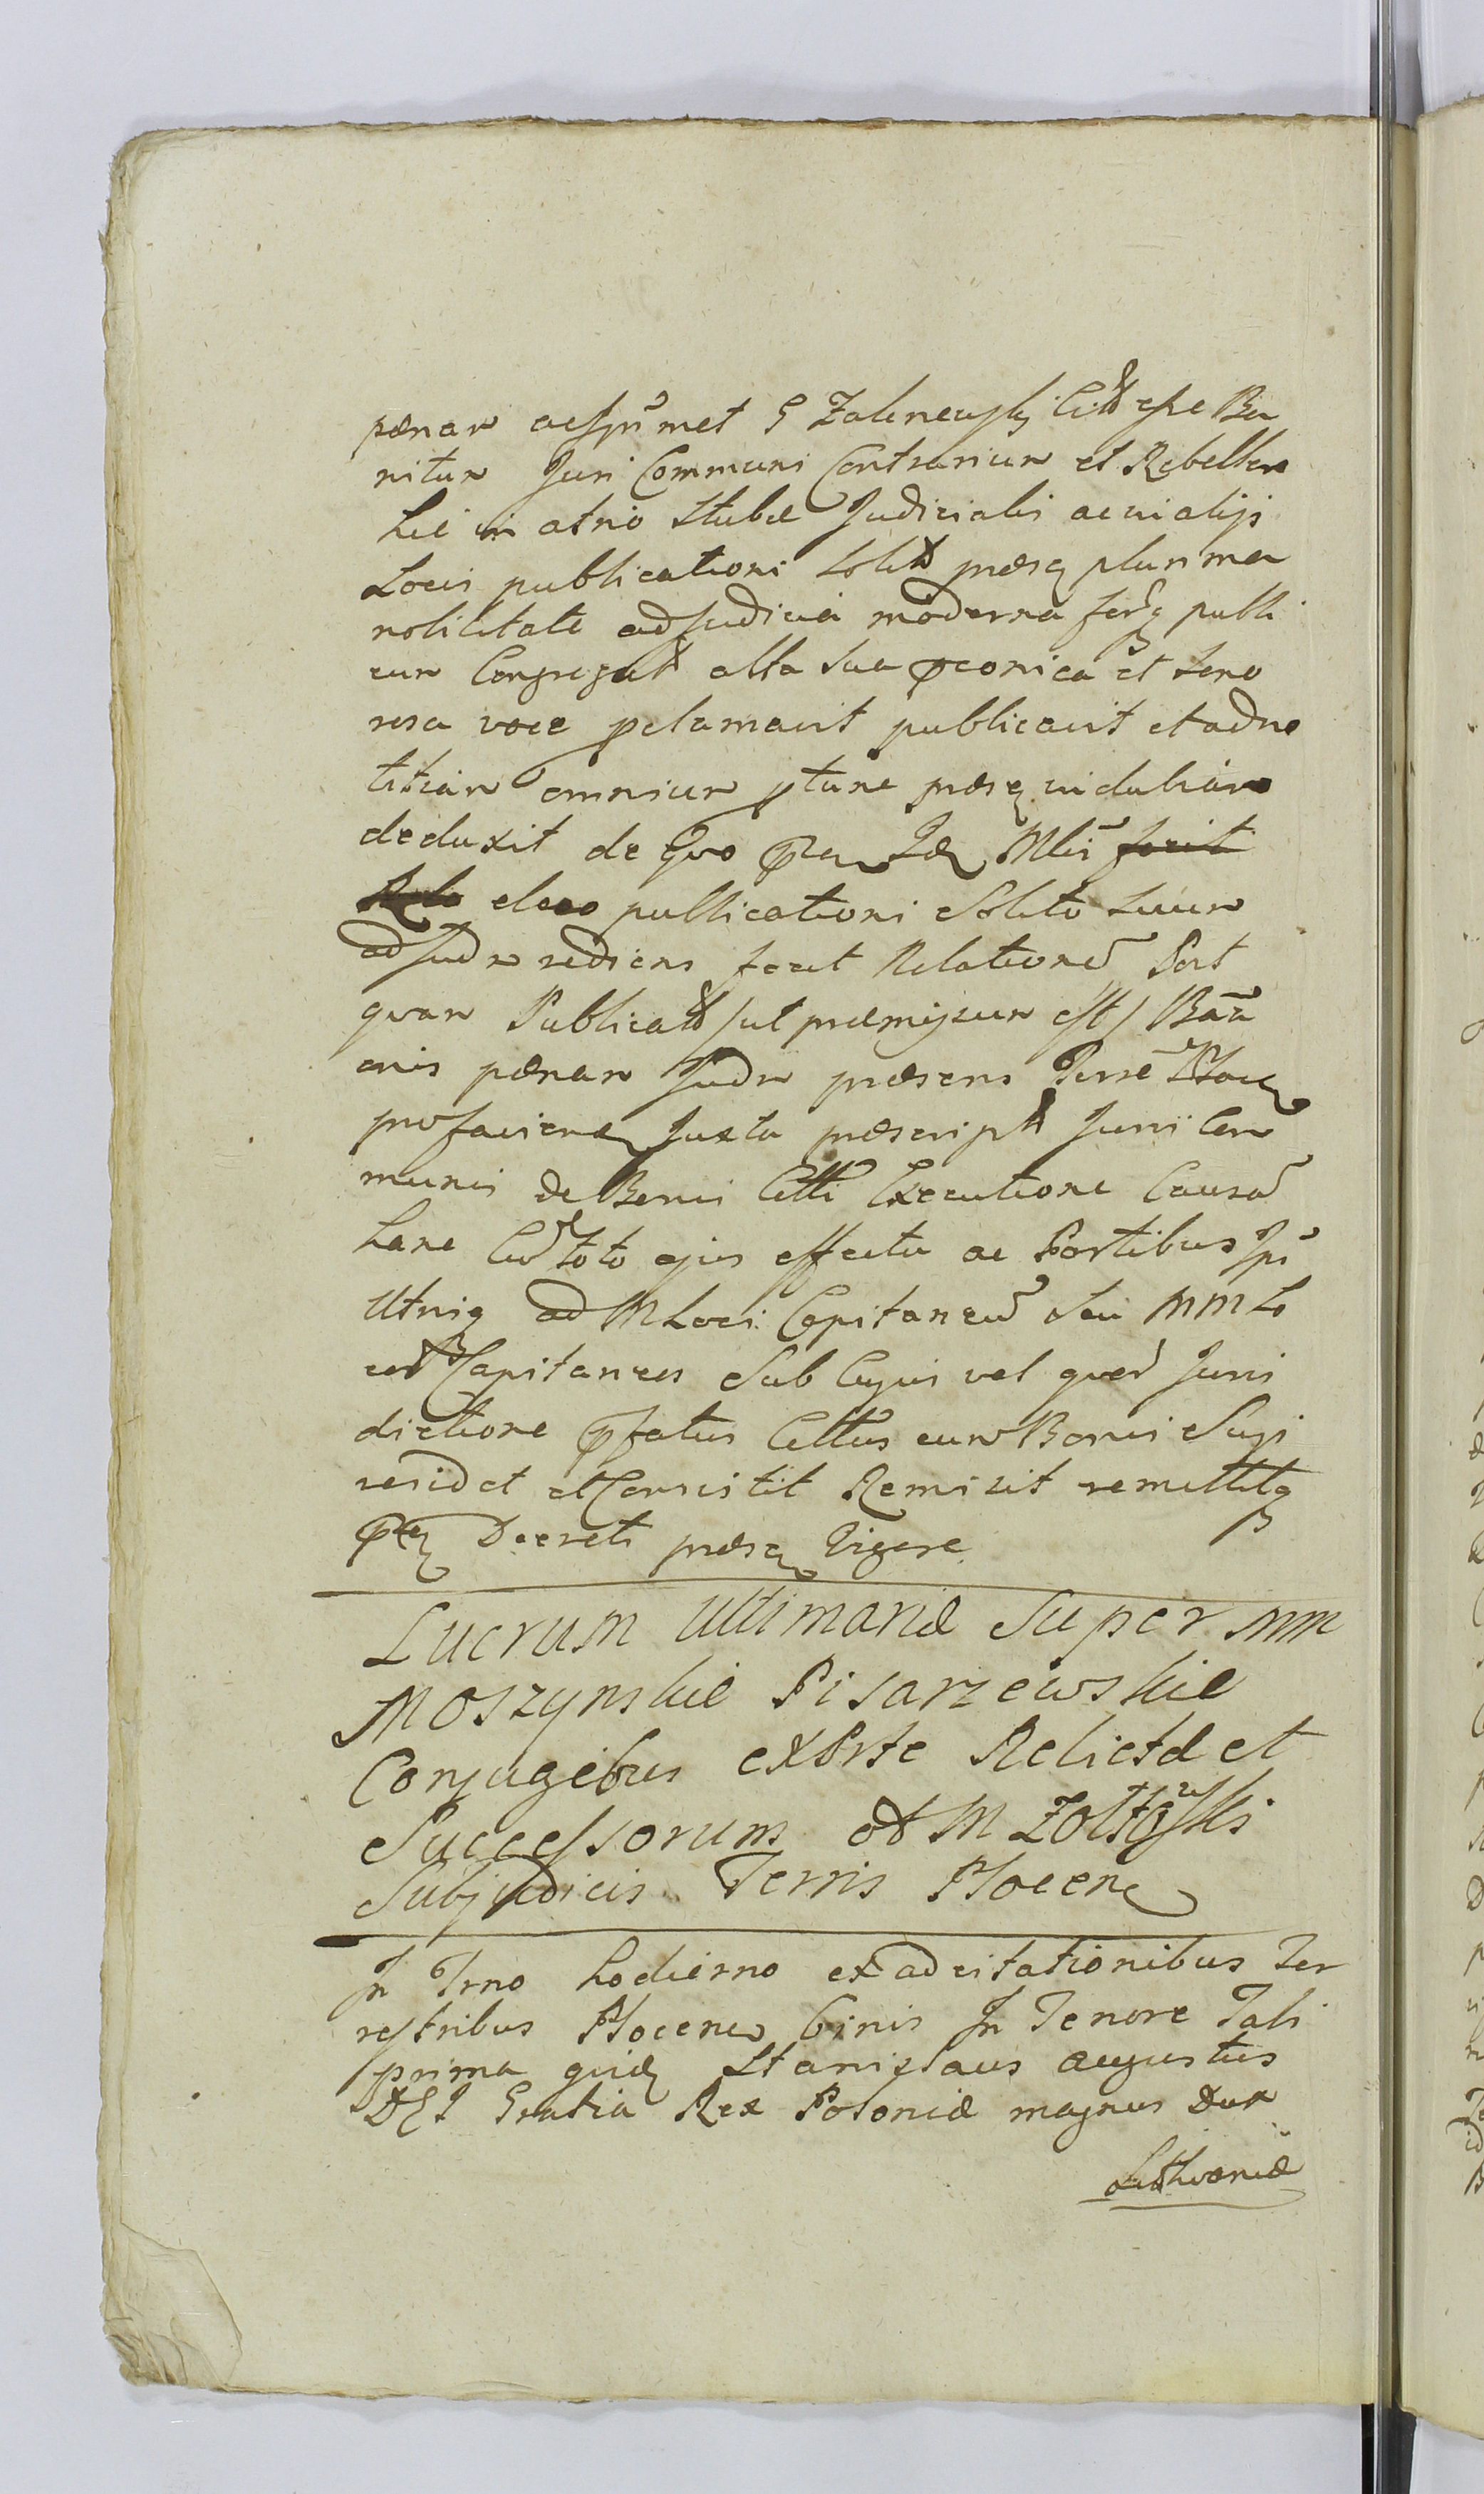 pænam ac ipũmet G Zalenewski Citt esse Ba
nitum Juri Communi Contrarium et Rebellem
hic in atrio stubæ Judicialis ac in alijs
Locis publicationi solit præsq plurima
nobilitate ad Judicia moderna
cum Congregat alta sua et sono
rosa voce pclamavit publicavit et ad no
titiam omnium ptunc præsq indubiam
deduxit de quo Mlis fecit
Rela eloco publicationi solito suum
ad Judm rediens fecit Relationẽ Post
quam Publicatt /ut præmissum est/ Bãu
onis pænam Judm præsens Terrẽ Ploceñ
pro faciend Juxta præscript Juris Com
munis de Bonis Citti Executione Causã
hanc Cũ toto ejus effectu ac Partibus Ips
Utrisq ad M Loci Capitaneũ seu MM Lo
corũ Capitaneos Sub Cujus vel quor Juris
dictione pfatus Cittus cum Bonis Suis
residet et Consistit Remisit remittitq
Decreti præsen Vigore
Lucrum Ultimariæ Super MM
Moszynskie Pisarzewskie
Conjugibus ex Prte Relictæ et
Successorum ol M Zołtowski
Subjudicis Terris Plocen
In Trno hodierno ex adcitationibus Ter
restribus Plocen binis In Tenore Tali
prima quid Stanislaus Augustus
DEI Gratia Rex Poloniæ magnus Dux
Lithvaniæ